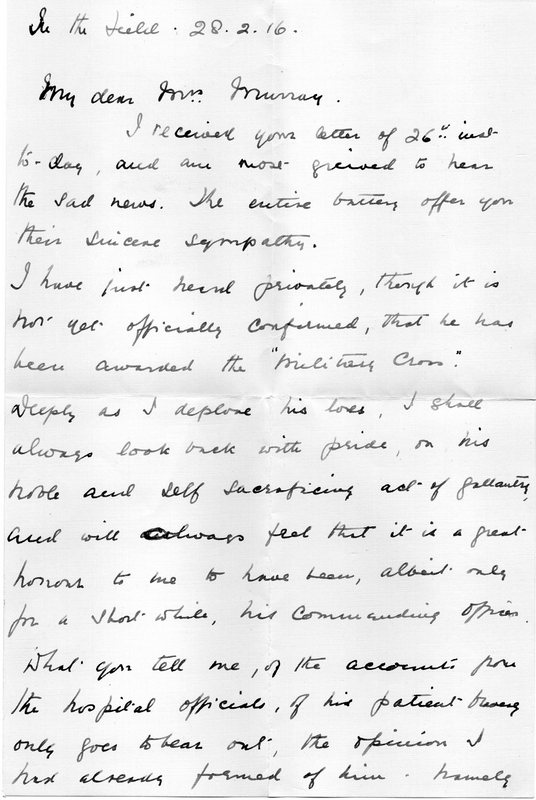 In the Field. 28.2.16.
My dear Mrs. Murray.
I received your letter of 26th inst
to-day, and am most greived to hear
the sad news. The entire battery offer you
their sincere sympathy.
I have just heard privately, though it is
not yet officially confirmed, that he has
been awarded the "Military Cross".
Deeply as I deplore his loss, I shall
always look back with pride, on his
noble and self sacraficing act of gallantry,
and will always feel that it is a great
honour to me to have been, albeit only
for a short while, his Commanding Officer.
What you tell me, of the accounts from
the hospital officials, of his patient bravery
only goes to bear out, the opinion I
had already formed of him. Namely